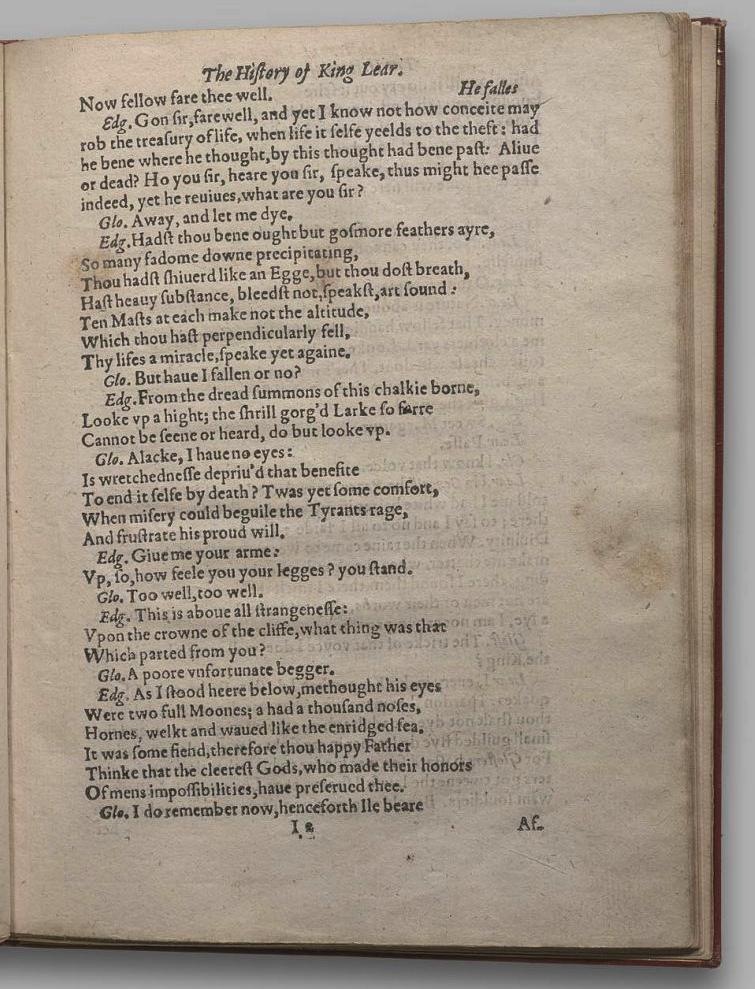 The Hiſtory of King Lear.
Now fellow fare thee well. He falles
Edg. Gon ſir, farewell, and yet I know not how conceite may
rob the treaſury of life, when life it ſelfe yeelds to the theft: had
he bene where he thought, by this thought had bene paſt: Aliue
or dead? Ho you ſir, heare you ſir, ſpeake, thus might hee paſſe
indeed, yet he reuiues, what are you ſir?
Glo. Away, and let me dye.
Edg. Hadſt thou bene ought but goſmore feathers ayre,
So many fadome downe precipitating,
Thou hadſt ſhiuerd like an Egge, but thou doſt breath,
Haſt heauy ſubſtance, bleedſt not, ſpeakſt, art ſound:
Ten Maſts at each make not the altitude,
Which thou haſt perpendicularly fell,
Thy lifes a miracle, ſpeake yet againe.
Glo. But haue I fallen or no?
Edg. From the dread ſummons of this chalkie borne,
Looke vp a hight; the ſhrill gorg'd Larke ſo farre
Cannot be ſeene or heard, do but looke vp.
Glo. Alacke, I haue no eyes:
Is wretchedneſſe depriu'd that benefite
To end it ſelfe by death? Twas yet ſome comfort,
When miſery could beguile the Tyrants rage,
And fruſtrate his proud will.
Edg. Giue me your arme:
Vp, ſo, how feele you your legges? you ſtand.
Glo. Too well, too well.
Edg. This is aboue all ſtrangeneſſe:
Vpon the crowne of the cliffe, what thing was that
Which parted from you?
Glo. A poore vnfortunate begger.
Edg. As I ſtood heere below, methought his eyes
Were two full Moones; a had a thouſand noſes,
Hornes, welkt and waued like the enridged ſea,
It was ſome fiend, therefore thou happy Father
Thinke that the cleereſt Gods, who made their honors
Of mens impoſſibilities, haue preſerued thee.
Glo. I do remember now, henceforth Ile beare
I 2 Af-